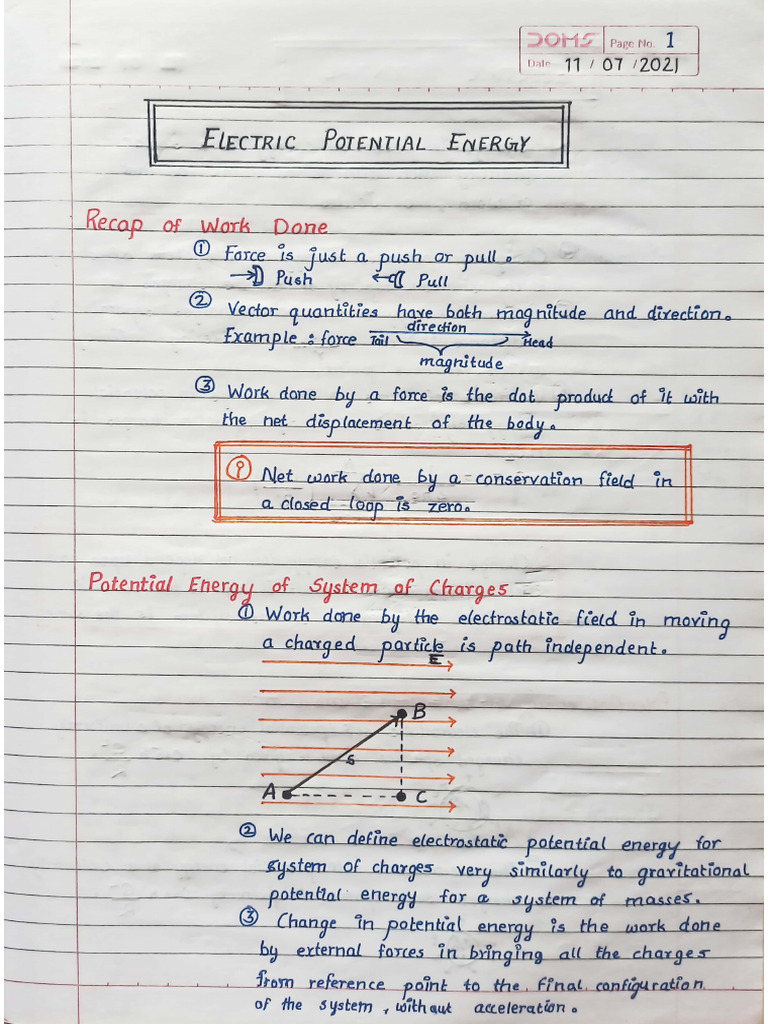 DOMS Page No. 1
Date 11 / 07 / 2021
ELECTRIC POTENTIAL ENERGY
Recap of Work Done
① Force is just a push or pull.
Push Pull
② Vector quantities have both magnitude and direction.
direction
Example : force Tail Head
magnitude
③ Work done by a force is the dot product of it with
the net displacement of the body.
Net work done by a conservation field in
a closed loop is zero.
Potential Energy of System of Charges
① Work done by the electrostatic field in moving
a charged particle is path independent.
E
B
s
A C
② We can define electrostatic potential energy for
system of charges very similarly to gravitational
potential energy for a system of masses.
③ Change in potential energy is the work done
by external forces in bringing all the charges
from reference point to the final configuration
of the system, without acceleration.